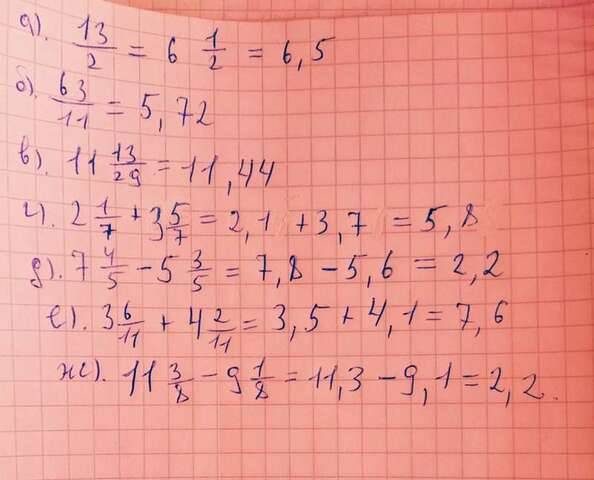 а). 13/2 = 6 1/2 = 6,5
б). 63/11 = 5,72
в). 11 13/29 = 11,44
г). 2 1/7 + 3 5/7 = 2,1 + 3,7 = 5,8
д). 7 4/5 - 5 3/5 = 7,8 - 5,6 = 2,2
е). 3 6/11 + 4 2/11 = 3,5 + 4,1 = 7,6
ж). 11 3/8 - 9 1/8 = 11,3 - 9,1 = 2,2.